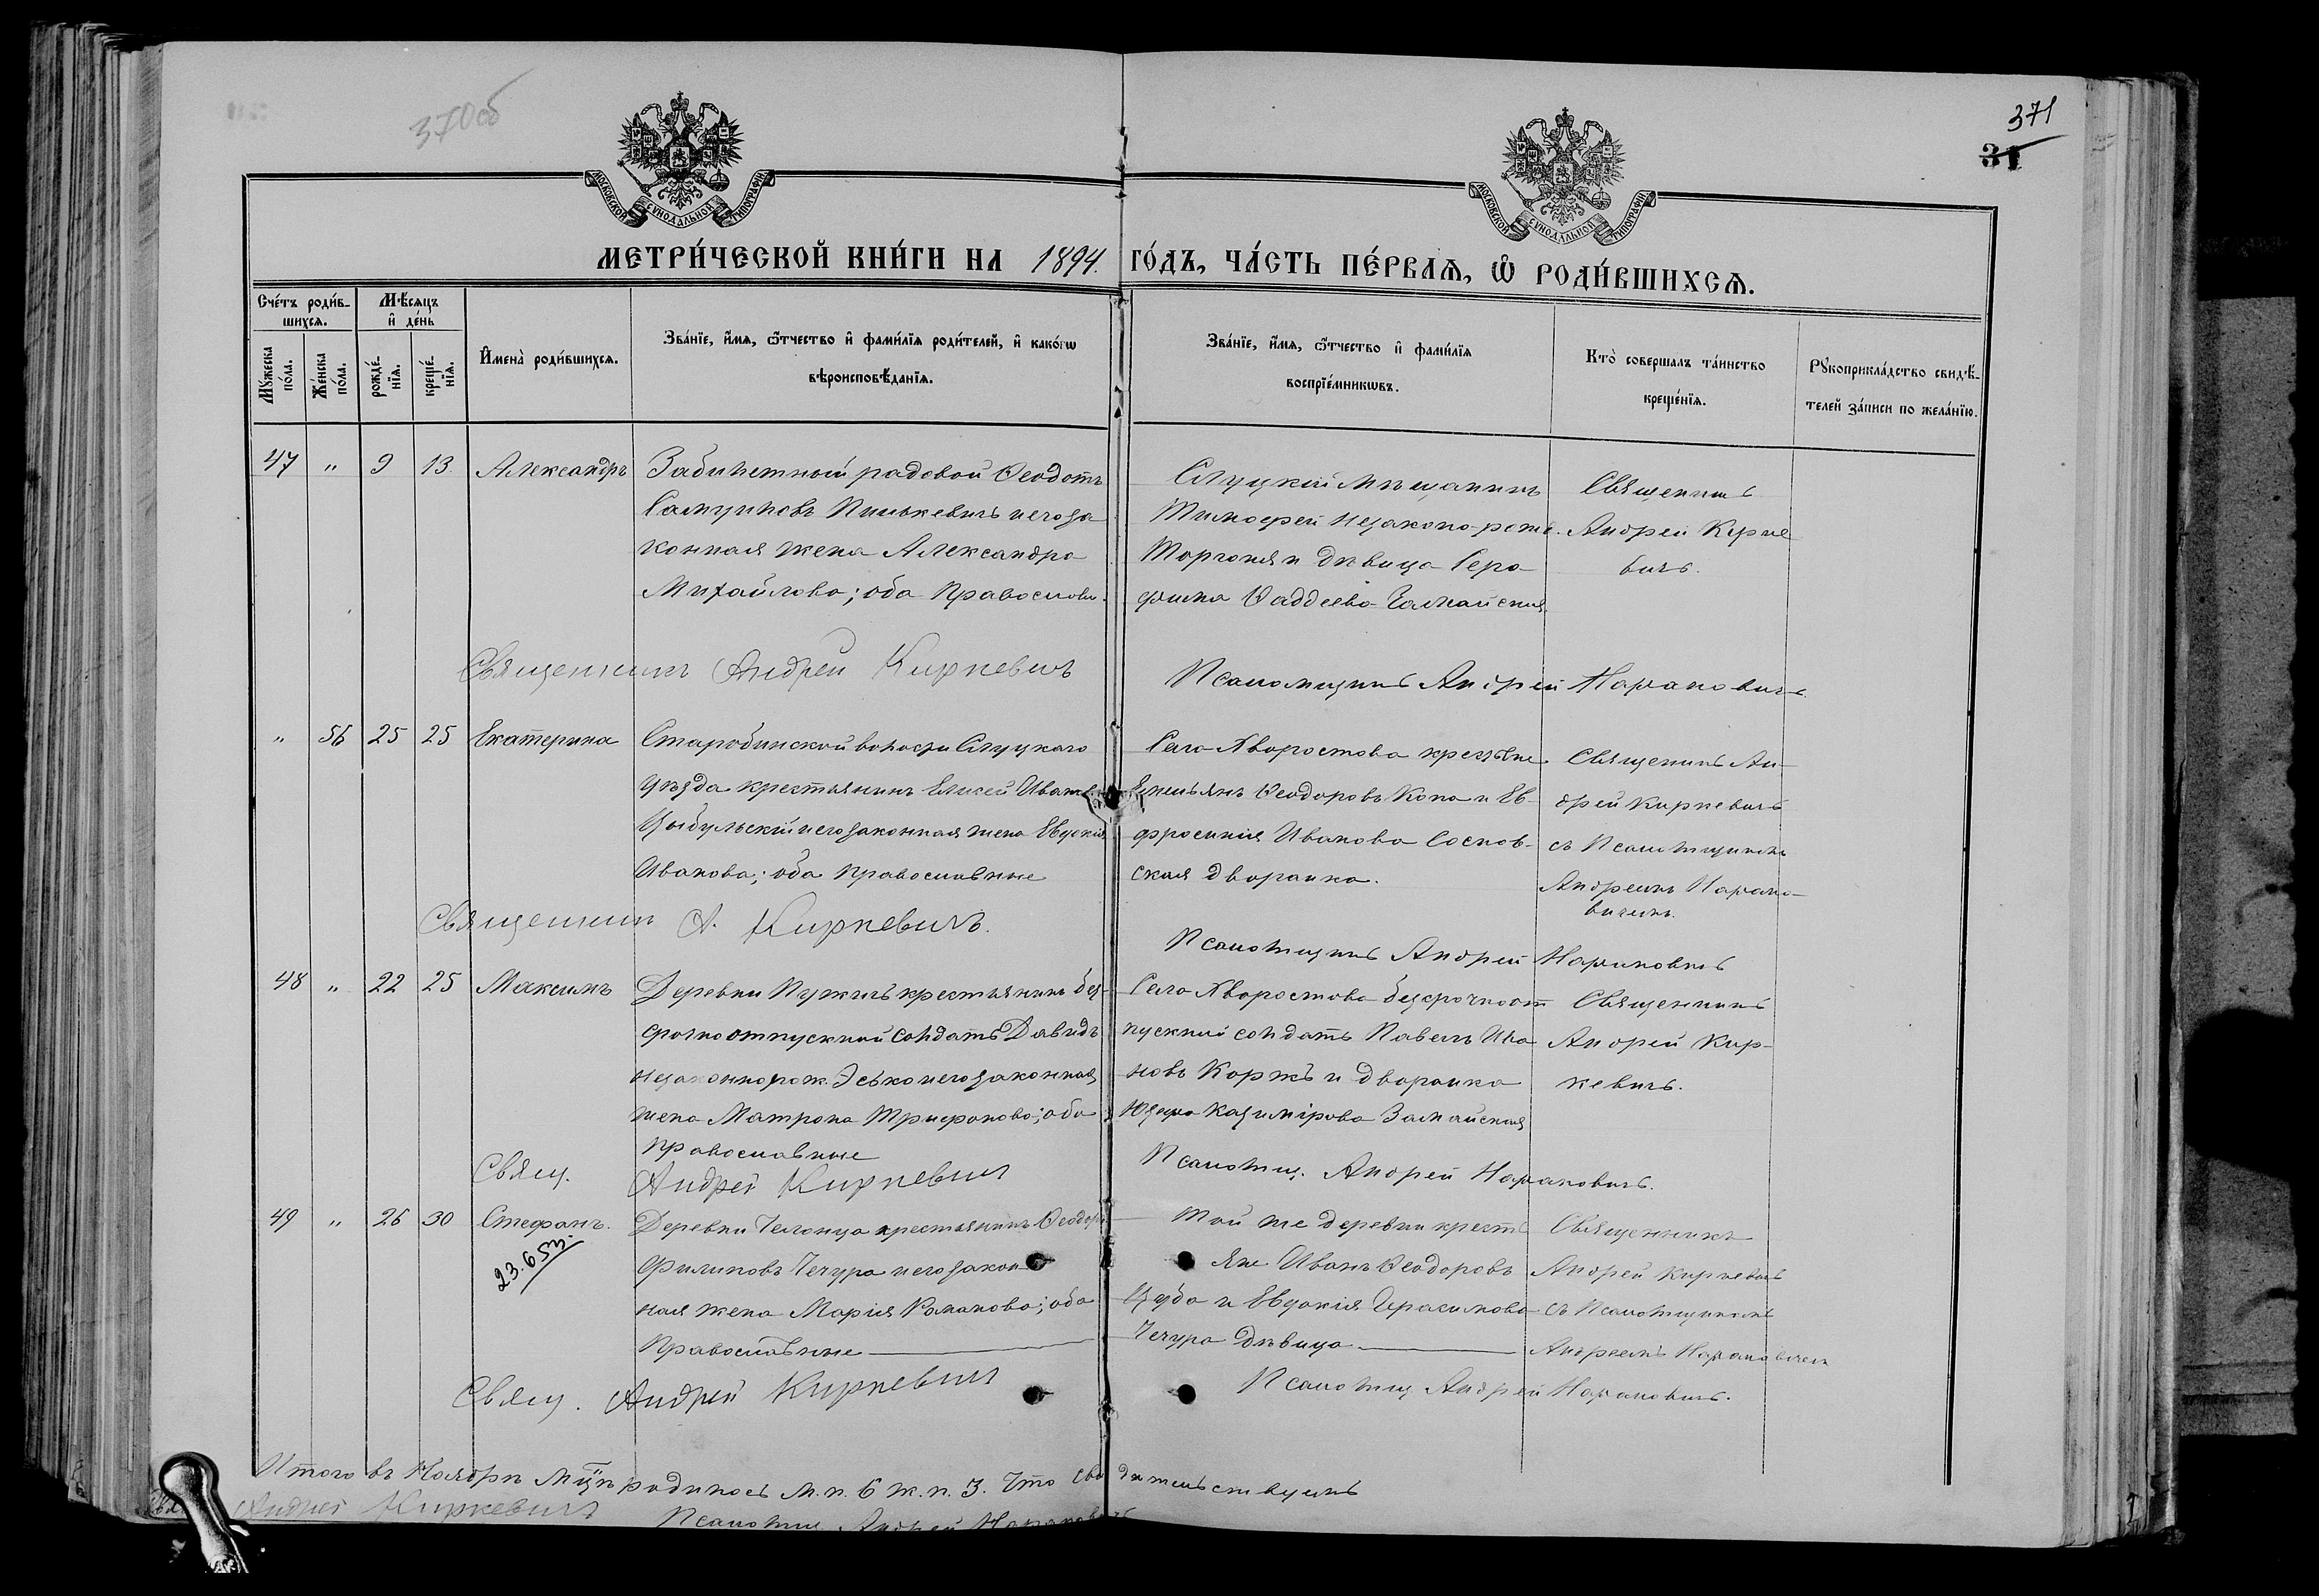 370об
371
31
МОСКОВСКОЙ СУНОДАЛЬНОЙ ТИПОГРАФІИ
МОСКОВСКОЙ СУНОДАЛЬНОЙ ТИПОГРАФІИ
МЕТРИ́ЧЕСКОЙ КНИ́ГИ НА 1894. ГО́ДЪ, ЧА́СТЬ ПЕ́РВАѦ, Ѡ РОДИ́ВШИХСѦ.
Сче́тъ роди́в-
шихсѧ.
Мѣ́сѧцъ
и҆ де́нь
Мꙋ́жеска
по́ла.
Же́нска
по́ла.
рожде́-
нїѧ.
креще́-
нїѧ.
И҆мена̀ роди́вшихсѧ.
Зва́нїе, и҆́мѧ, ѻ҆́тчество и҆ фами́лїѧ роди́телей, и҆ како́гѡ
вѣроисповѣ́данїѧ.
Зва́нїе, и҆́мѧ, ѻ҆́тчество и҆ фами́лїѧ
воспрїе́мникѡвъ.
Кто̀ соверша́лъ та́инство
креще́нїѧ.
Рꙋкоприкла́дство свидѣ́-
телей за́писи по жела́нїю.
47 " 9 13. Александръ Забилетный рядовой Ѳеодотъ
Самуиловъ Пинькевичъ и его за
конная жена Александра
Михайлова; оба православн.
Слуцкій мѣщанинъ
Тимофей незаконо-рожд.
и дѣвица Сера
фима Ѳаддеева
Священникъ
Андрей Кирке
вичъ.
Священникъ Андрей Киркевичъ
Псаломщикъ Андрей Нарановичъ
" 56 25 25 Екатерина Старобинской волости Слуцкаго
уѣзда крестьянинъ Елисей Иванъ
Цыбульскій и его законная жена Евдокія
Иванова; оба православные
Села Хворостова крестьяне
Емельянъ Ѳеодоровъ Копа и Ев-
фросинія Иванова Соснов-
ская дворянка.
Священникъ Ан-
дрей Киркевичъ
съ Псаломщикомъ
Андреемъ Нарано-
вичемъ.
Священникъ А. Киркевичъ.
Псаломщикъ Андрей Нарановичъ
48 " 22 25 Максимъ Деревни Пужичъ крестьянинъ без-
срочноотпускной солдатъ Давидъ
незаконнорож. Эсько и его законная
жена Матрона Трифонова; оба
православные
Села Хворостова безсрочноот
пускный солдатъ Павелъ Ива
новъ Коржъ и дворянка
Юзефа Казимірова
Священникъ
Андрей Кир-
кевичъ.
Свящ. Андрей Киркевичъ
Псаломщ. Андрей Нарановичъ.
49 " 26 30 Стефанъ. Деревни Челонца крестьянинъ Ѳеодоръ
Филиповъ Чечура и его закон
ная жена Марія Романова; оба
Православные
23.653.
Той же деревни кресть
яне Иванъ Ѳеодоровъ
Цуба и Евдокія Герасимова
Чечура дѣвица
Священникъ
Андрей Киркевичъ
съ Псаломщикомъ
Андреемъ Нарановичемъ
Свящ. Андрей Киркевичъ
Псаломщ Андрей Нарановичъ.
Итого въ Ноябрѣ мцѣ родилось м.п. 6 ж.п. 3. Что свидѣтельствуемъ
Андрей Киркевичъ Псаломщ. Андрей Нарановичъ